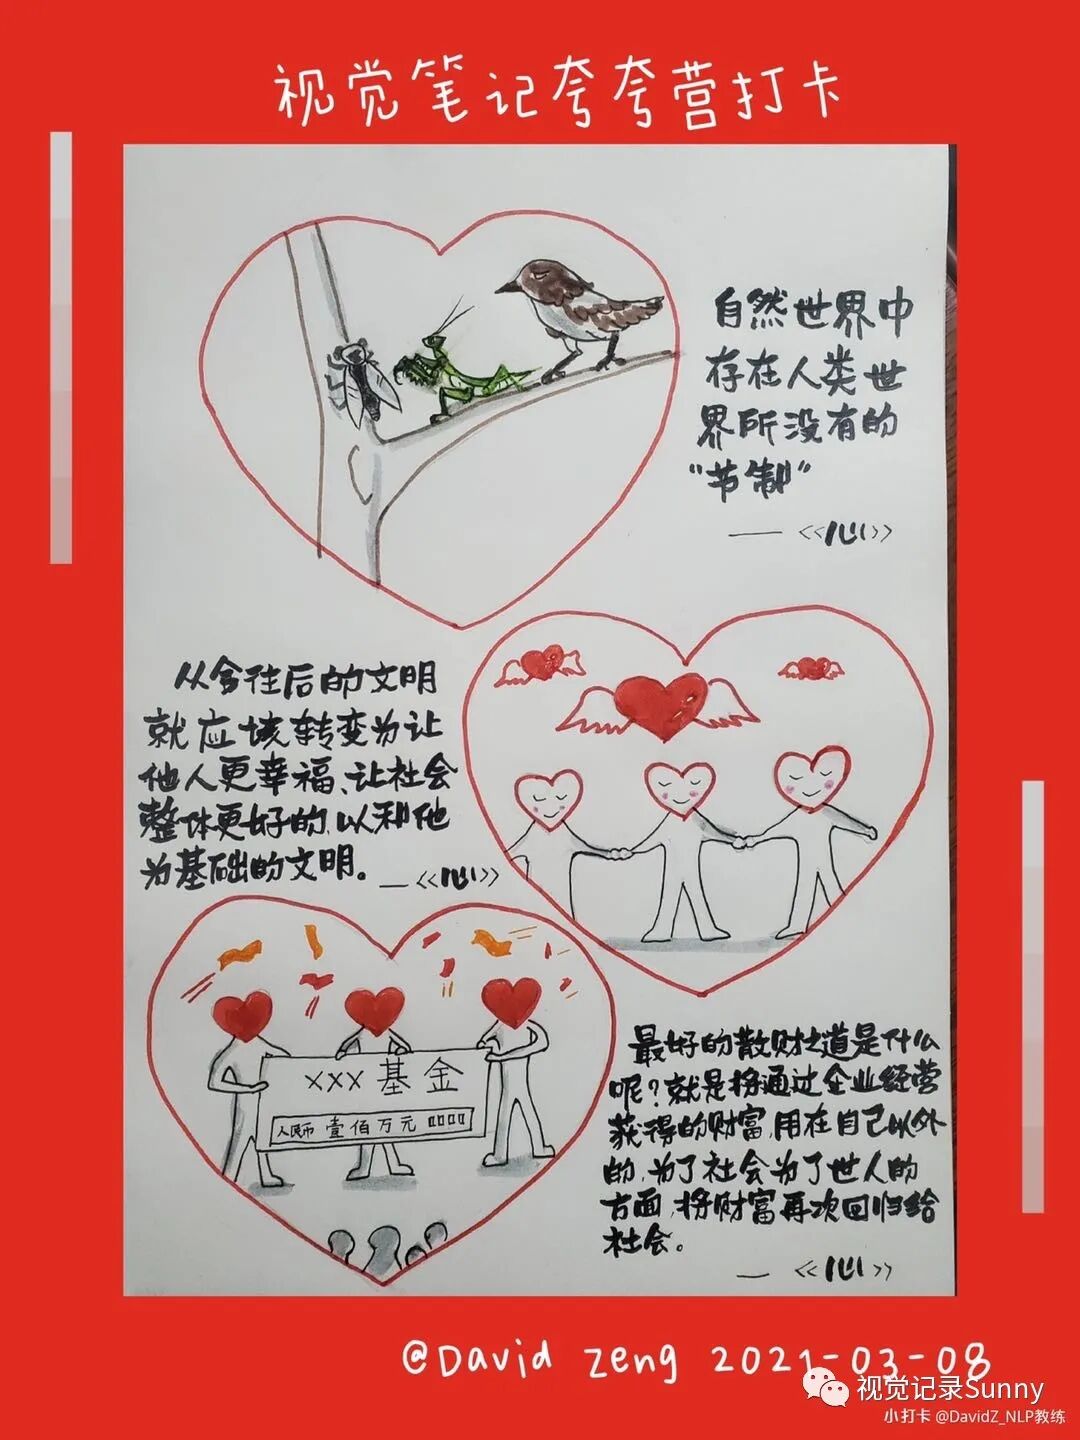 视觉笔记夸夸营打卡
自然世界中
存在人类世
界所没有的
“节制”
——《心》
从今往后的文明
就应该转变为让
他人更幸福、让社会
整体更好的、以利他
为基础的文明。
——《心》
XXX基金
人民币 壹佰万元 0000
最好的散财之道是什么
呢?就是将通过企业经营
获得的财富,用在自己以外
的,为了社会为了世人的
方面,将财富再次回归给
社会。
——《心》
@David Zeng 2021-03-08
视觉记录Sunny
小打卡 @DavidZ_NLP教练